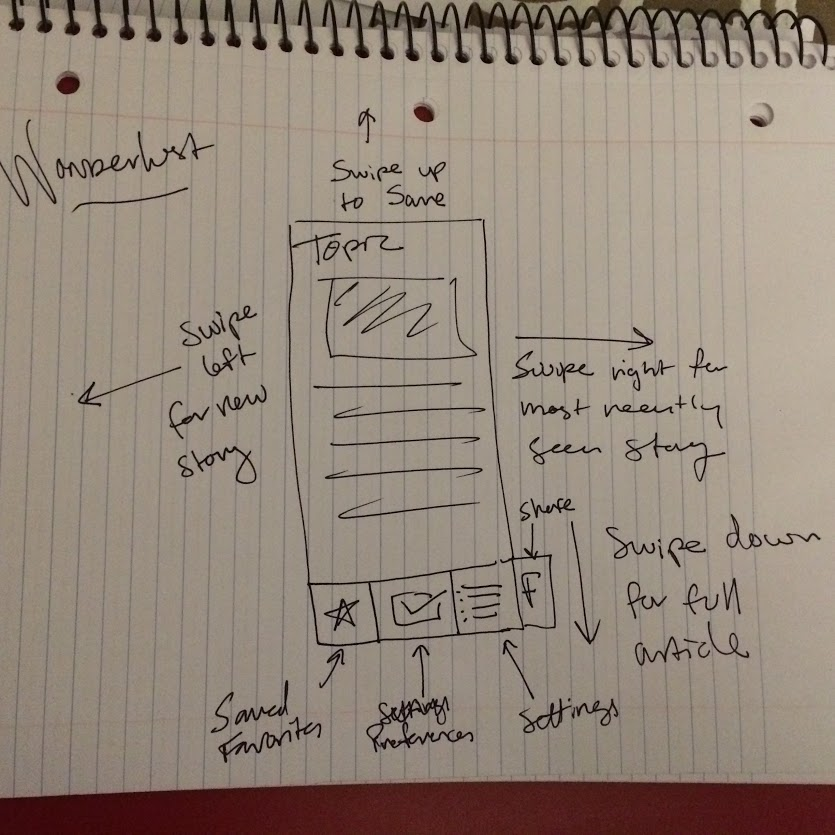 Wanderlust
Swipe up
to Save
Topic
Swipe
left
for new
story
Swipe right for
most recently
seen story
share
Swipe down
for full
article
F
Saved
Favorites
Preferences
Settings